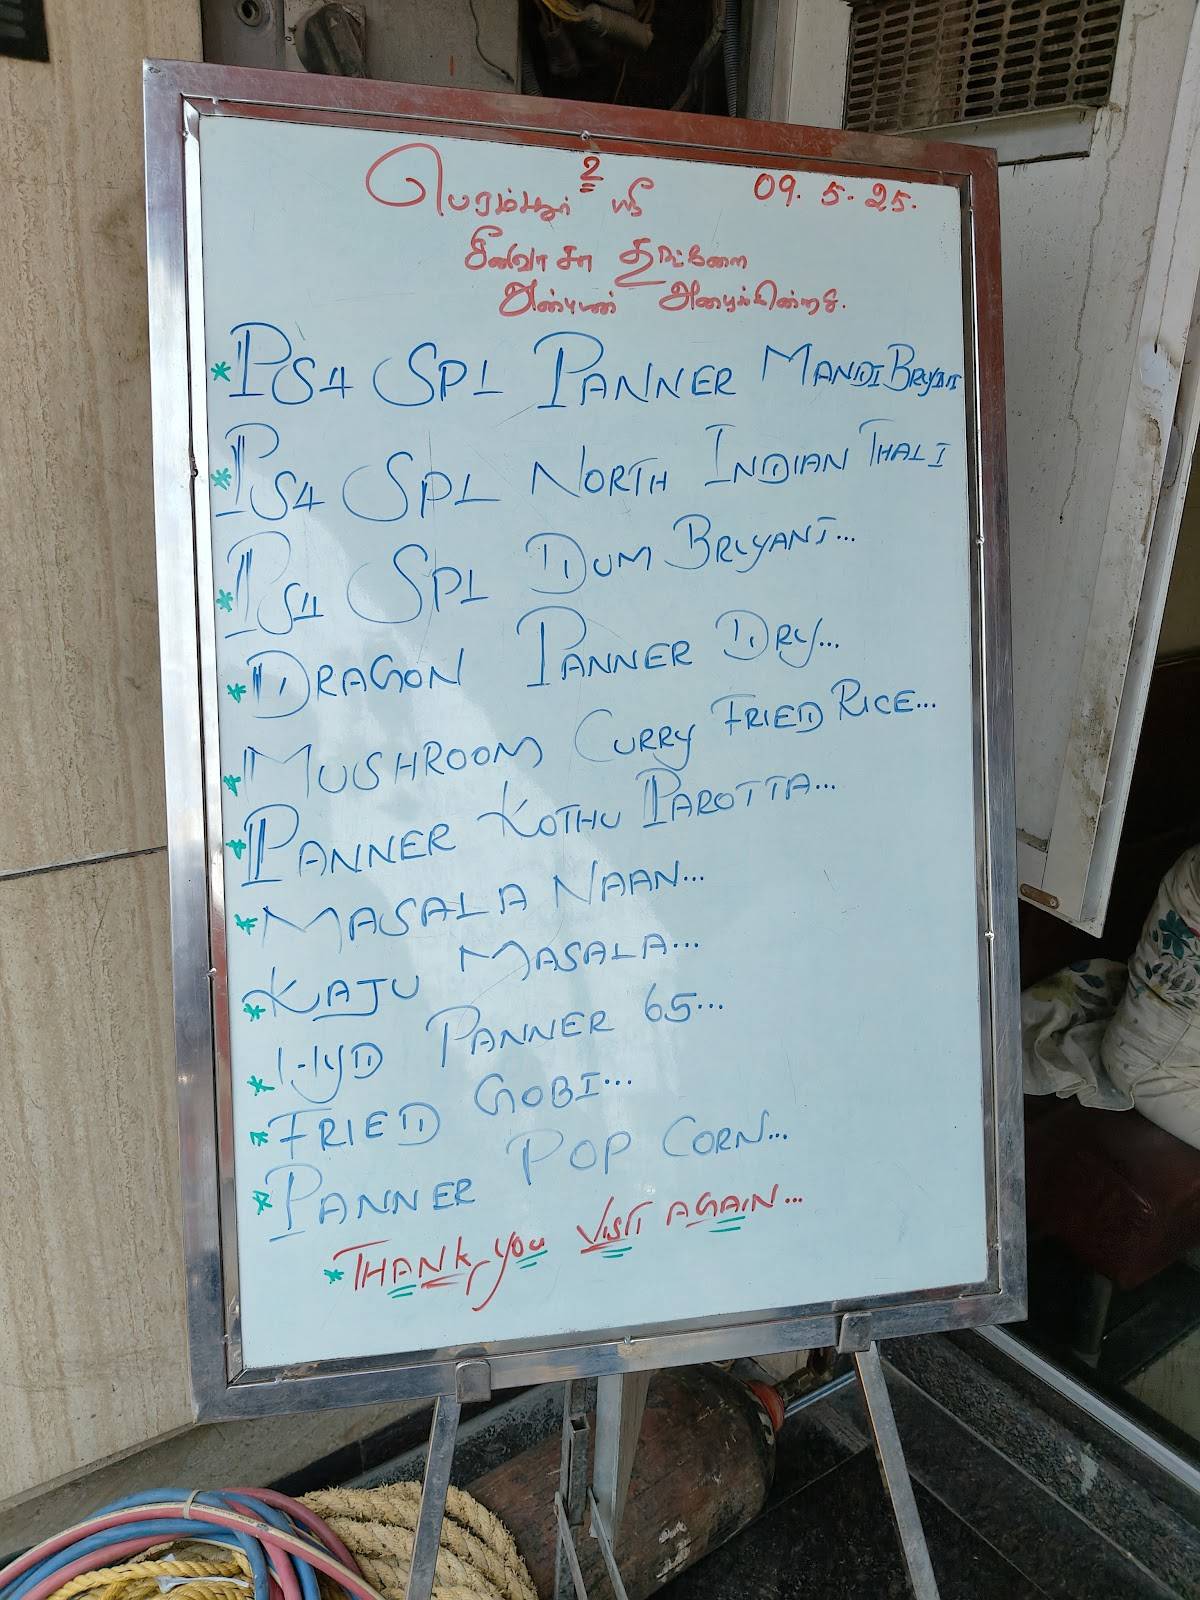 உ
பெரம்பூர் ஸ்ரீ 09.5.25.
சீனிவாசா தங்களை
அன்புடன் அழைக்கின்றது.
* PS4 SPL PANNER MANDI BRIYANI
* PS4 SPL NORTH INDIAN THALI
* PS4 SPL DUM BRIYANI...
* DRAGON PANNER DRY...
* MUSHROOM CURRY FRIED RICE...
* PANNER KOTHU PAROTTA...
* MASALA NAAN...
* KAJU MASALA...
* HYD PANNER 65...
* FRIED GOBI...
* PANNER POP CORN...
* THANK YOU VISIT AGAIN...